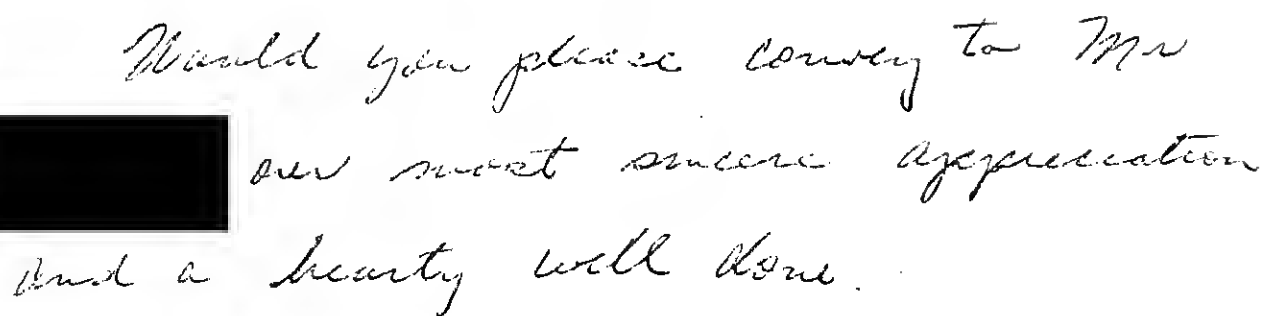 Would you please convey to Mr
our most sincere appreciation
and a hearty well done.